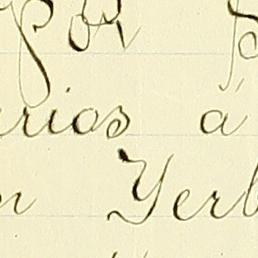 por
rios á
n Yerb